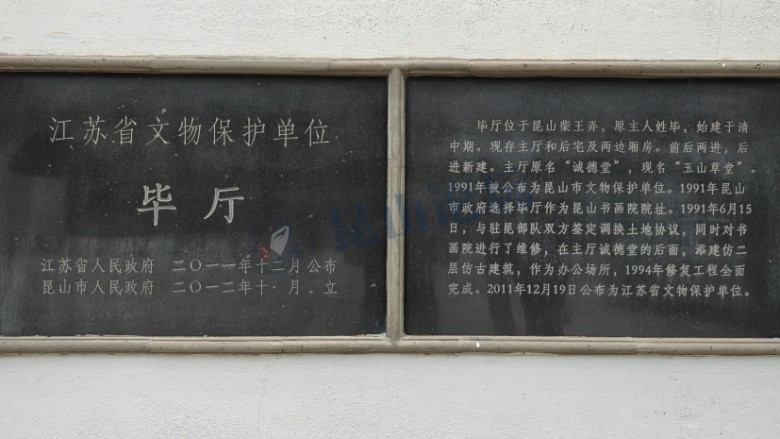 江苏省文物保护单位
毕厅
江苏省人民政府 二〇一一年十二月公布
昆山市人民政府 二〇一二年十一月 立
毕厅位于昆山柴王弄，原主人姓毕，始建于清
中期。现存主厅和后宅及两边厢房。前后两进，后
进新建。主厅原名“诚德堂”，现名“玉山草堂”。
1991年被公布为昆山市文物保护单位。1991年昆山
市政府选择毕厅作为昆山书画院院址。1991年6月15
日，与驻昆部队双方签定调换土地协议，同时对书
画院进行了维修，在主厅诚德堂的后面，添建仿二
层仿古建筑，作为办公场所，1994年修复工程全面
完成。2011年12月19日公布为江苏省文物保护单位。